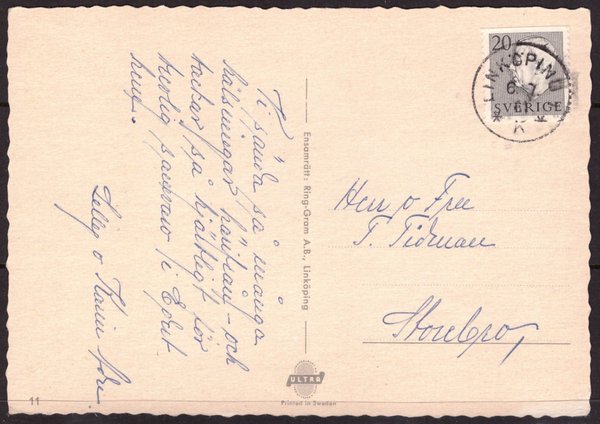 Vi sända så många
hälsningar härifrån - och
tackar så hjärtligt för
trevlig samvaro i Edert
hem.
o Karin
Ensamrätt: Ring-Gram A.B., Linköping
20
LINKÖPING
6 7
SVERIGE
* K *
Herr o Fru
T. Tidman
Storebro,
ULTRA
Printed in Sweden
11